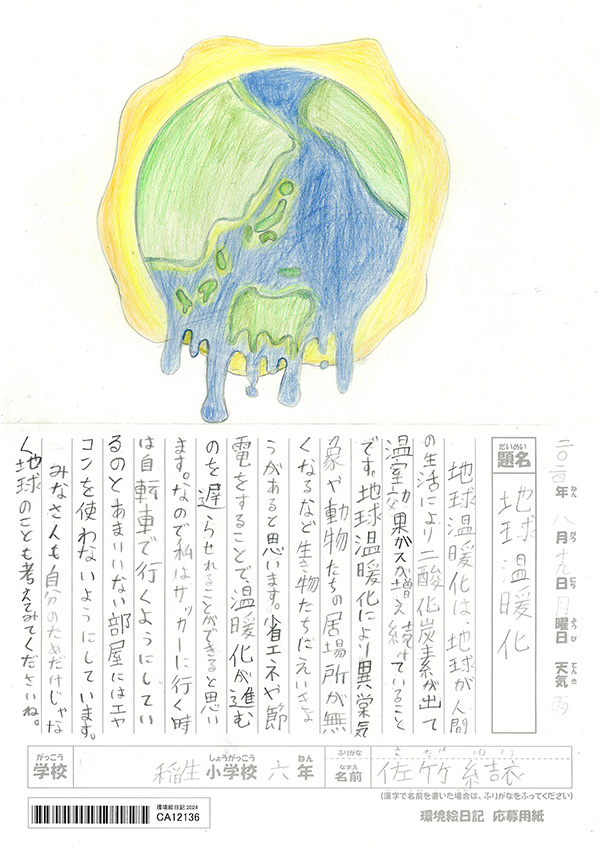 二〇二四年 八月十九日 月曜日 天気 雨
ねん がつ にち ようび てんき
だいめい
題名
地球温暖化
地球温暖化は、地球が人間
の生活により二酸化炭素が出て
温室効果ガスが増え続けていること
です。地球温暖化により異常気
象や動物たちの居場所が無
くなるなど生き物たちにえいきょ
うがあると思います。省エネや節
電をすることで、温暖化が進む
のを遅らせれることができると思い
ます。なので私はサッカーに行く時
は自転車で行くようにしてい
るのとあまりいない部屋にはエア
コンを使わないようにしています。
みなさんも自分のためだけじゃな
く地球のことも考えてみてくださいね。
がっこう しょうがっこう ねん
学校 稲生小学校 六年
ふりがな さたけ
なまえ
名前 佐竹
(漢字で名前を書いた場合は、ふりがなをふってください)
環境絵日記2024
CA12136
環境絵日記 応募用紙